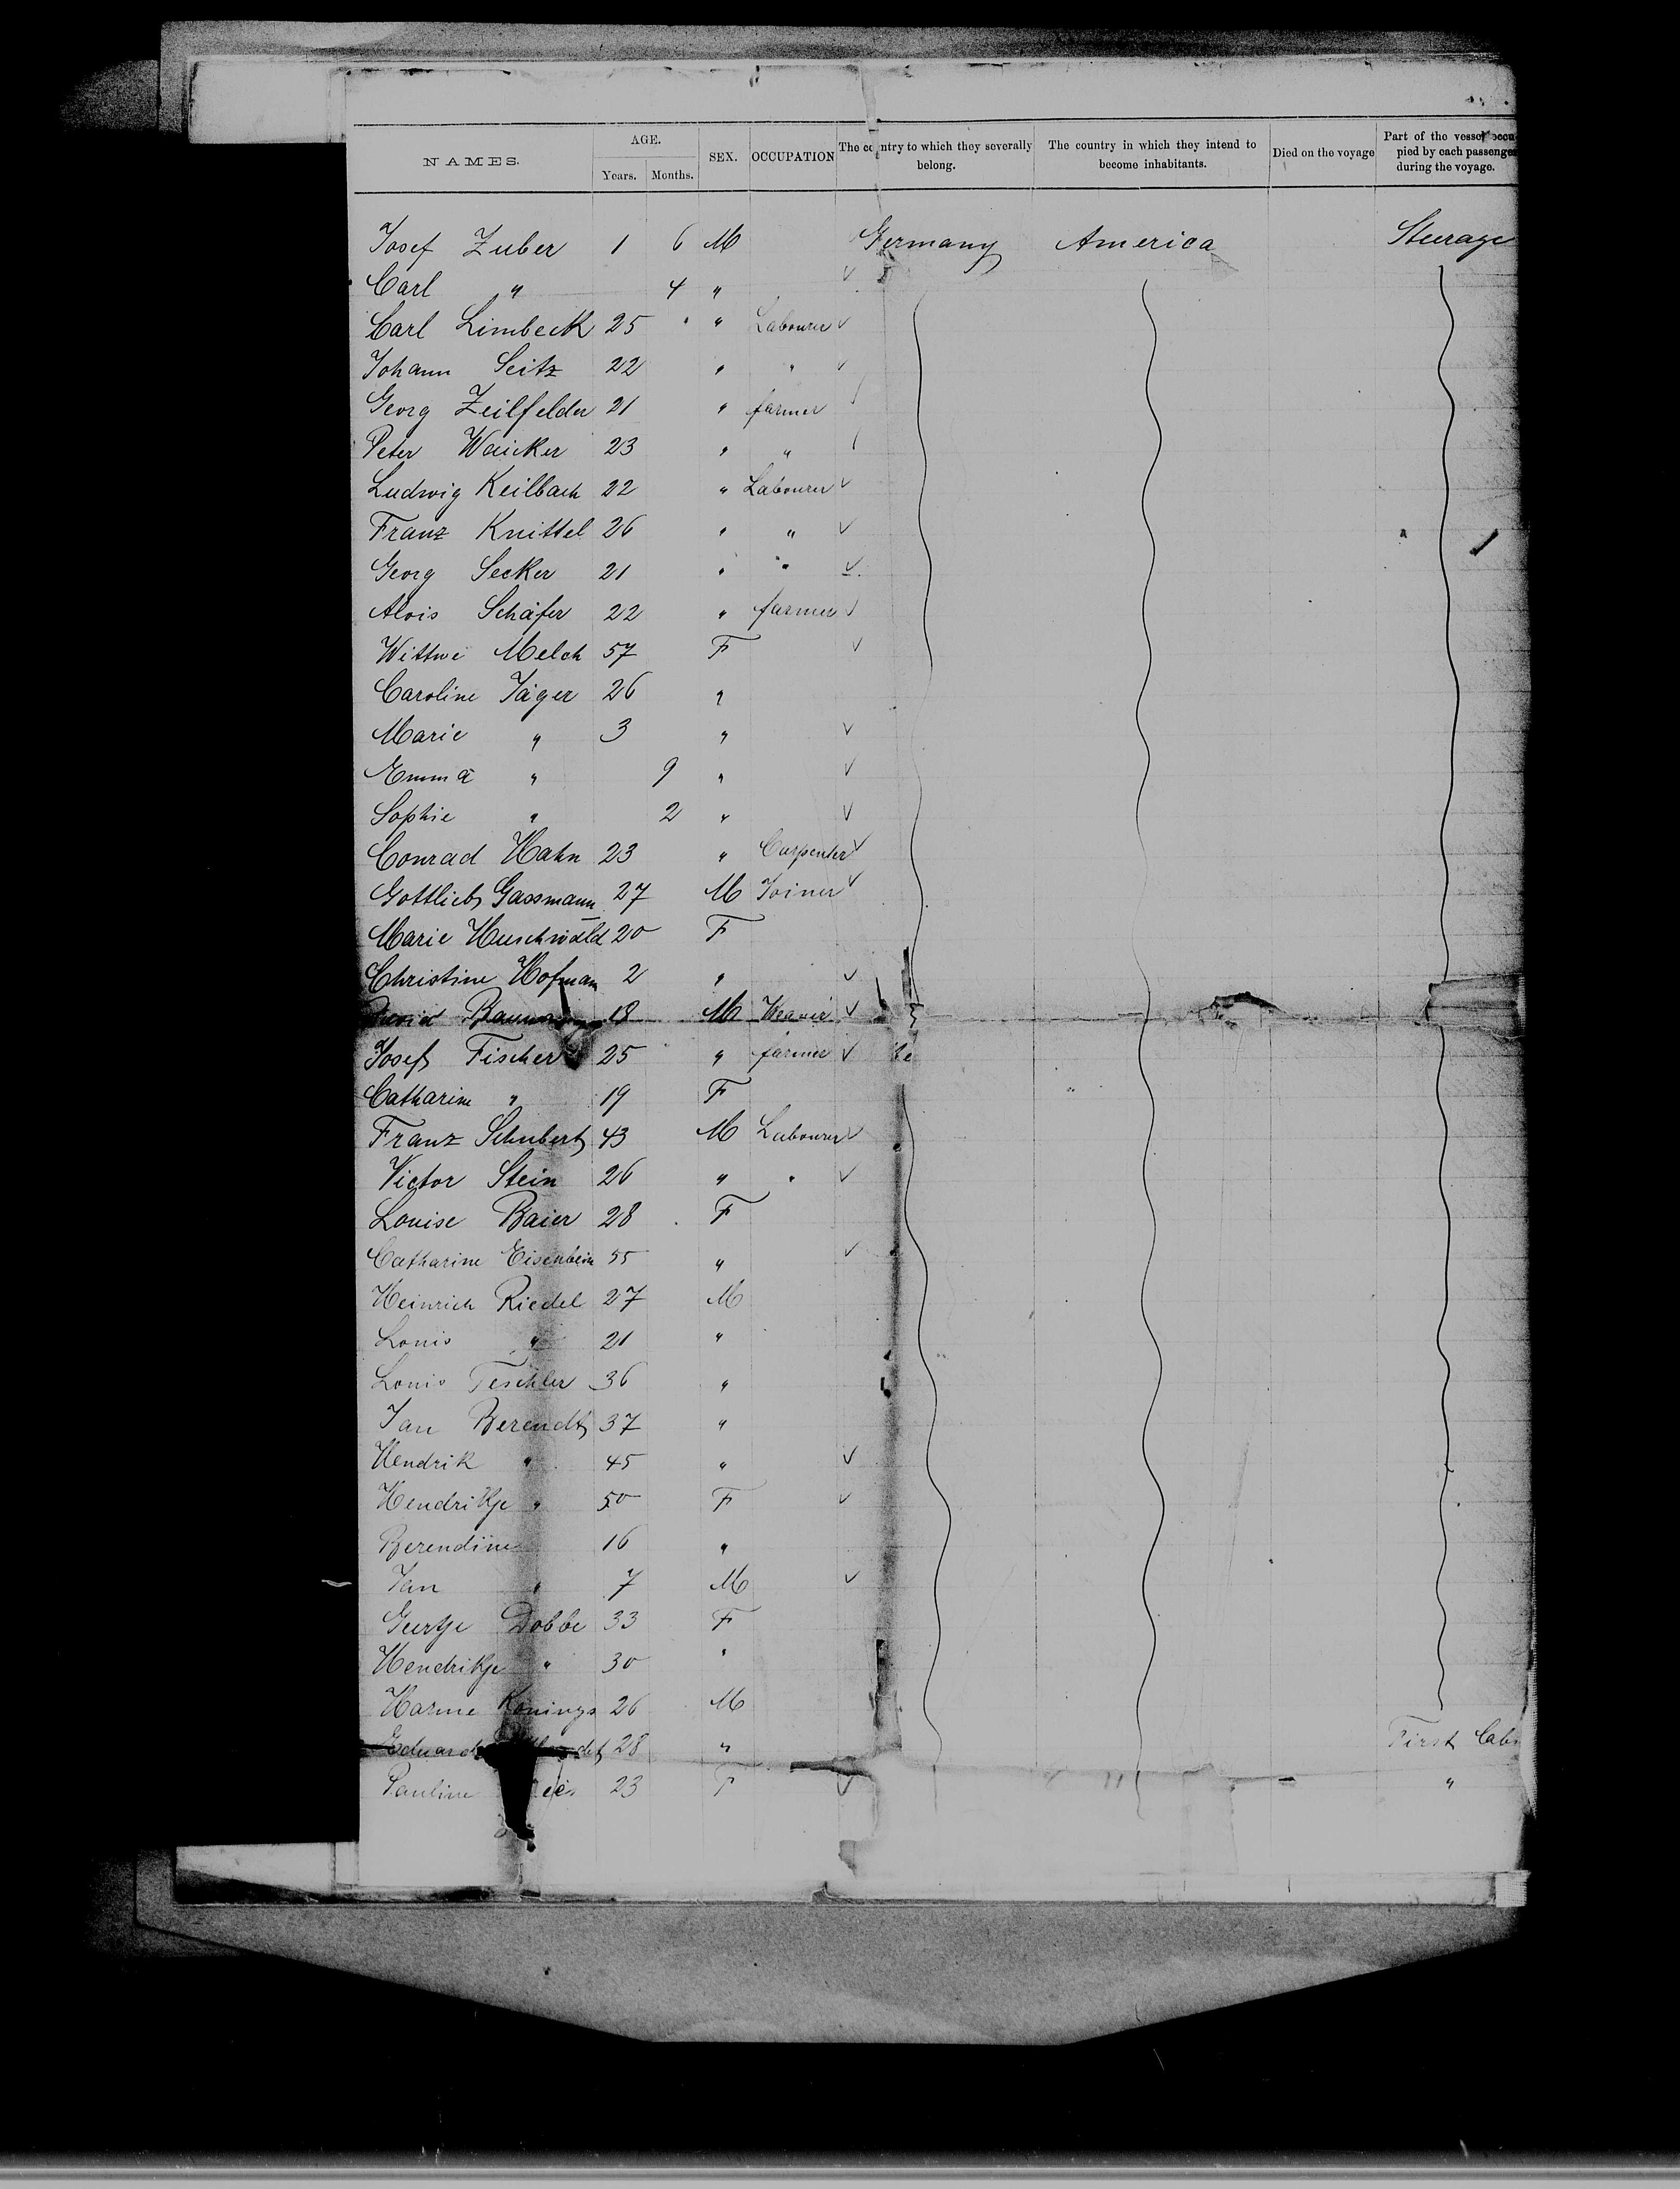 NAMES. AGE. SEX. OCCUPATION The country to which they severally belong. The country in which they intend to become inhabitants. Died on the voyage Part of the vessel occupied by each passenger during the voyage.
Years. Months.
Josef Zuber 1 6 M Germany America Steerage
Carl " 4 "
Carl Limbeck 25 " " Labourer
Johann Seitz 22 " "
Georg Zeilfelder 21 " farmer
Peter Waicker 23 " "
Ludwig Keilbach 22 " Labourer
Franz Knittel 26 " "
Georg Secker 21 " "
Alois Schäfer 22 " farmer
Wittwe Melch 57 F
Caroline Jäger 26 "
Marie " 3 "
Emma " 9 "
Sophie " 2 "
Conrad Hahn 23 " Carpenter
Gottlieb Gassmann 27 M Joiner
Marie Huschwald 20 F
Christine Hofman 2 "
18 M Weaver
Josef Fischer 25 " farmer
Catharine " 19 F
Franz Schubert 43 M Labourer
Victor Stein 26 " "
Louise Baier 28 F
Catharine Eisenbein 55 "
Heinrich Riedel 27 M
Louis " 21 "
Louis Teschler 36 "
Jan Berendt 37 "
Hendrik " 45 "
Hendrikje " 50 F
Berendine 16 "
Jan " 7 M
Geertje Dobbe 33 F
Hendrikje " 30 "
Harme Konings 26 M
Eduard 28 " First Cabi
Pauline 23 F "